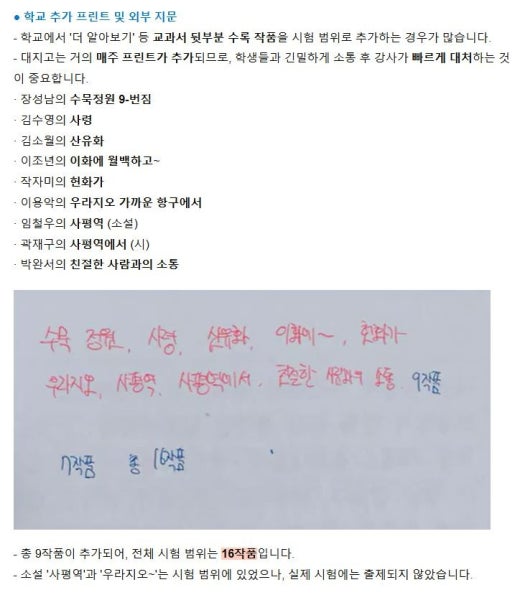 ● 학교 추가 프린트 및 외부 지문
- 학교에서 '더 알아보기' 등 교과서 뒷부분 수록 작품을 시험 범위로 추가하는 경우가 많습니다.
- 대지고는 거의 매주 프린트가 추가되므로, 학생들과 긴밀하게 소통 후 강사가 빠르게 대처하는 것
이 중요합니다.
· 장성남의 수묵정원 9-번짐
· 김수영의 사령
· 김소월의 산유화
· 이조년의 이화에 월백하고~
· 작자미의 헌화가
· 이용악의 우라지오 가까운 항구에서
· 임철우의 사평역 (소설)
· 곽재구의 사평역에서 (시)
· 박완서의 친절한 사람과의 소통
수묵 정원, 사령, 산유화, 이화에~, 헌화가
우라지오, 사평역, 사평역에서, 친절한 사람과의 소통. 9작품
7작품 총 16작품
- 총 9작품이 추가되어, 전체 시험 범위는 16작품입니다.
- 소설 '사평역'과 '우라지오~'는 시험 범위에 있었으나, 실제 시험에는 출제되지 않았습니다.